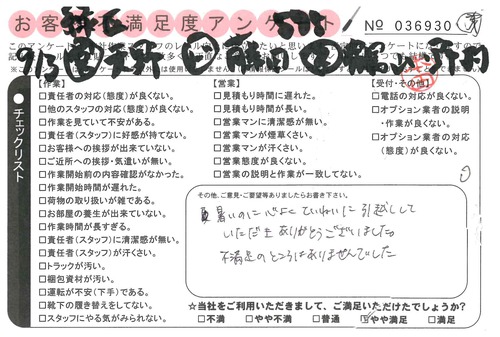 お客様不満足度アンケート
No 036930
9/13
【作業】
□責任者の対応(態度)が良くない。
□他のスタッフの対応(態度)が良くない。
□作業を見ていて不安がある。
□責任者(スタッフ)に好感が持てない。
□お客様への挨拶が出来ていない。
□ご近所への挨拶・気遣いが無い。
□作業開始前の内容確認がなかった。
□作業開始時間が遅れた。
□荷物の取り扱いが雑である。
□お部屋の養生が出来ていない。
□作業時間が長すぎる。
□責任者(スタッフ)に清潔感が無い。
□責任者(スタッフ)が汗くさい。
□トラックが汚い。
□梱包資材が汚い。
□運転が不安(下手)である。
□靴下の履き替えをしてない。
□スタッフにやる気がみられない。
【営業】
□見積もり時間に遅れた。
□見積もり時間が長い。
□営業マンに清潔感が無い。
□営業マンが煙草くさい。
□営業マンが汗くさい。
□営業の態度が良くない。
□営業の説明と作業が一致してない。
【受付・その他】
□電話の対応が良くない。
□オプション業者の説明
・作業が良くない。
□オプション業者の対応
(態度)が良くない。
チェックリスト
その他、ご意見・ご要望等ありましたらお書き下さい。
暑いのに心よくていねいに引越しして
いただきありがとうございました。
不満足のところはありませんでした
☆当社をご利用いただきまして、ご満足いただけたでしょうか?
□不満 □やや不満 □普通 ☑やや満足 □満足